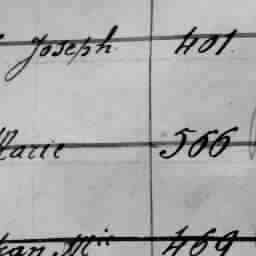 Joseph 401
Marie 566
Jean Mic 469